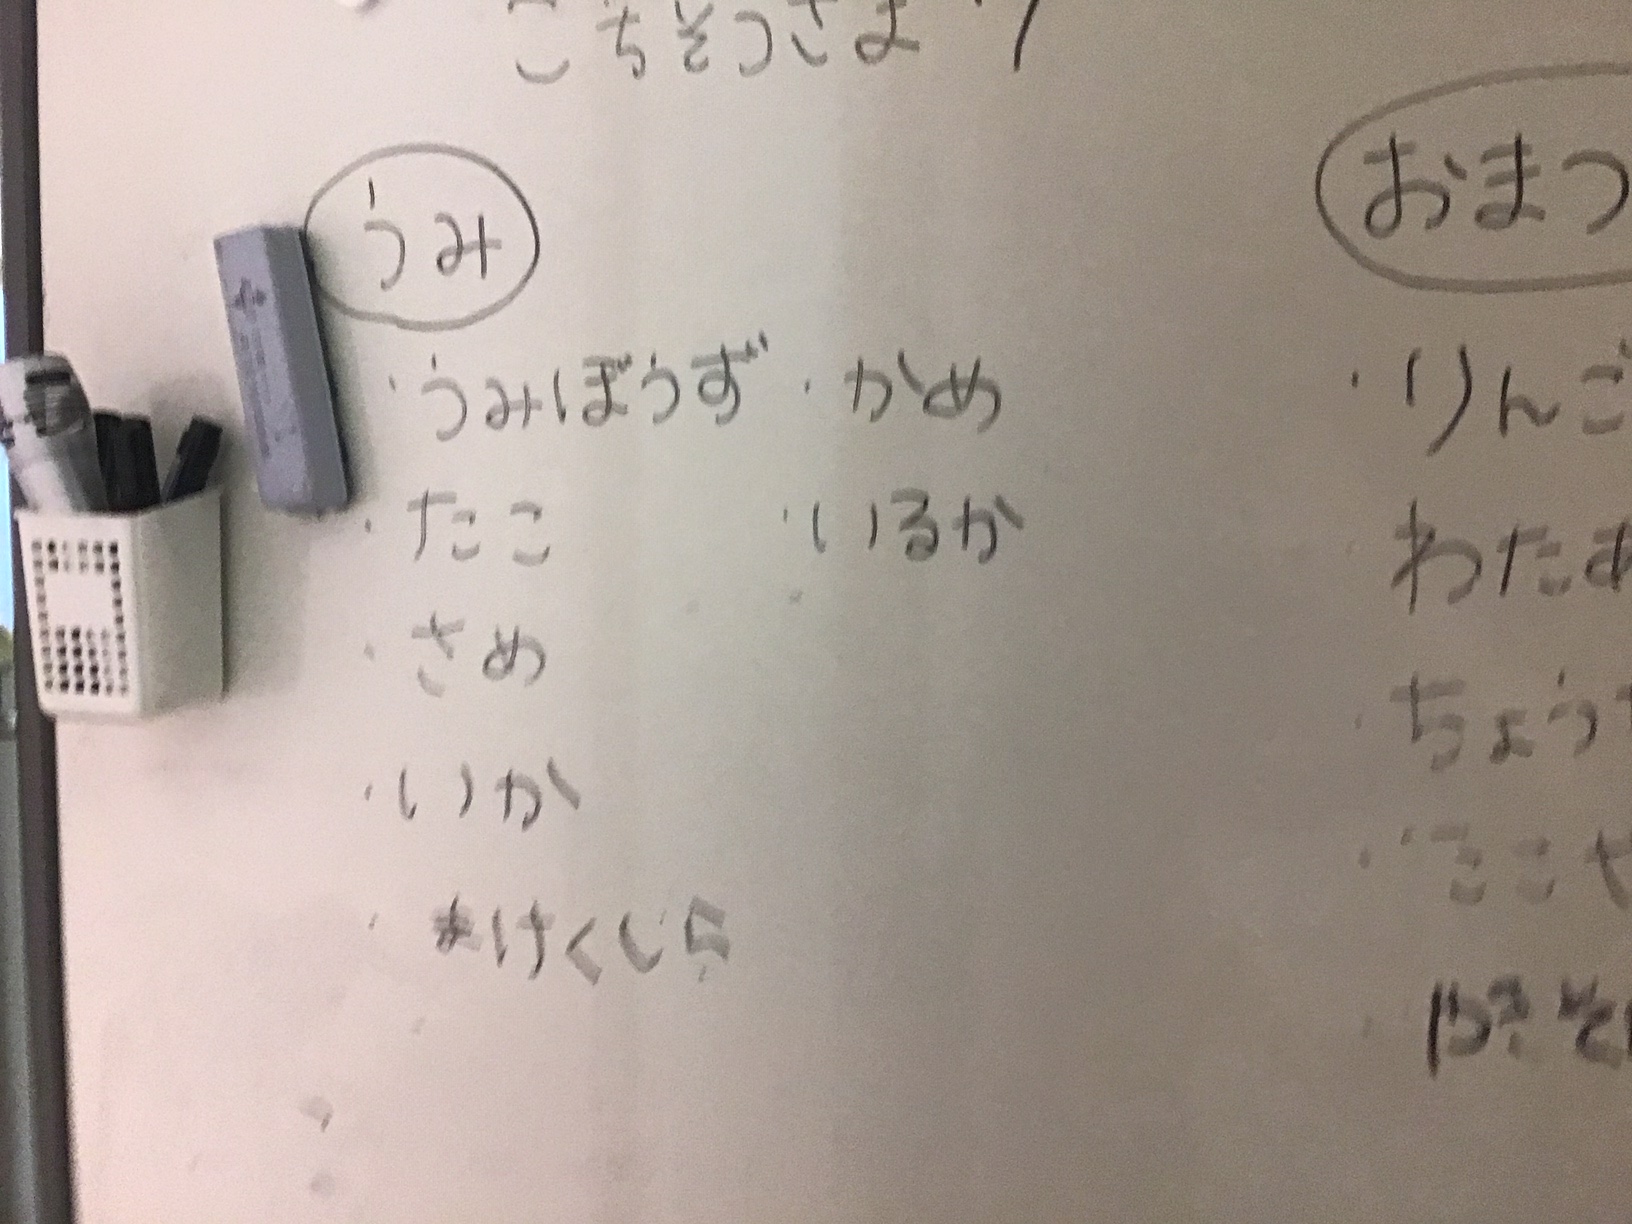 ごちそうさま
うみ
・うみぼうず ・かめ
・たこ ・いるか
・さめ
・いか
・まけくじら
おまつ
・りんご
・わたあ
・ちょう